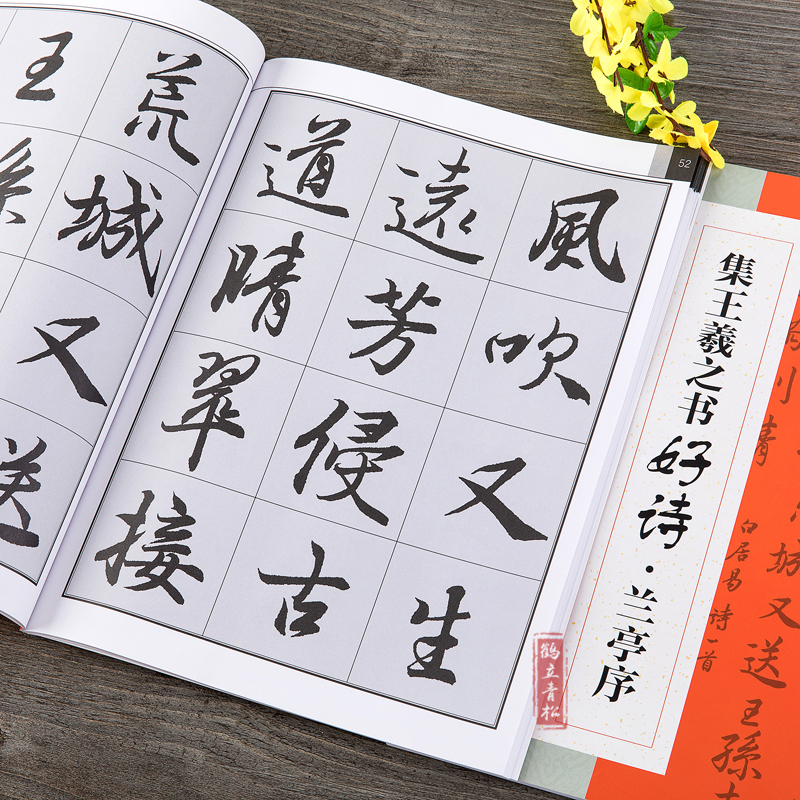 52
風吹又生
遠芳侵古
道晴翠接
荒城又送
王孫
集王羲之书好诗·兰亭序
城又送王孫
白居易诗一首
鹤立青松